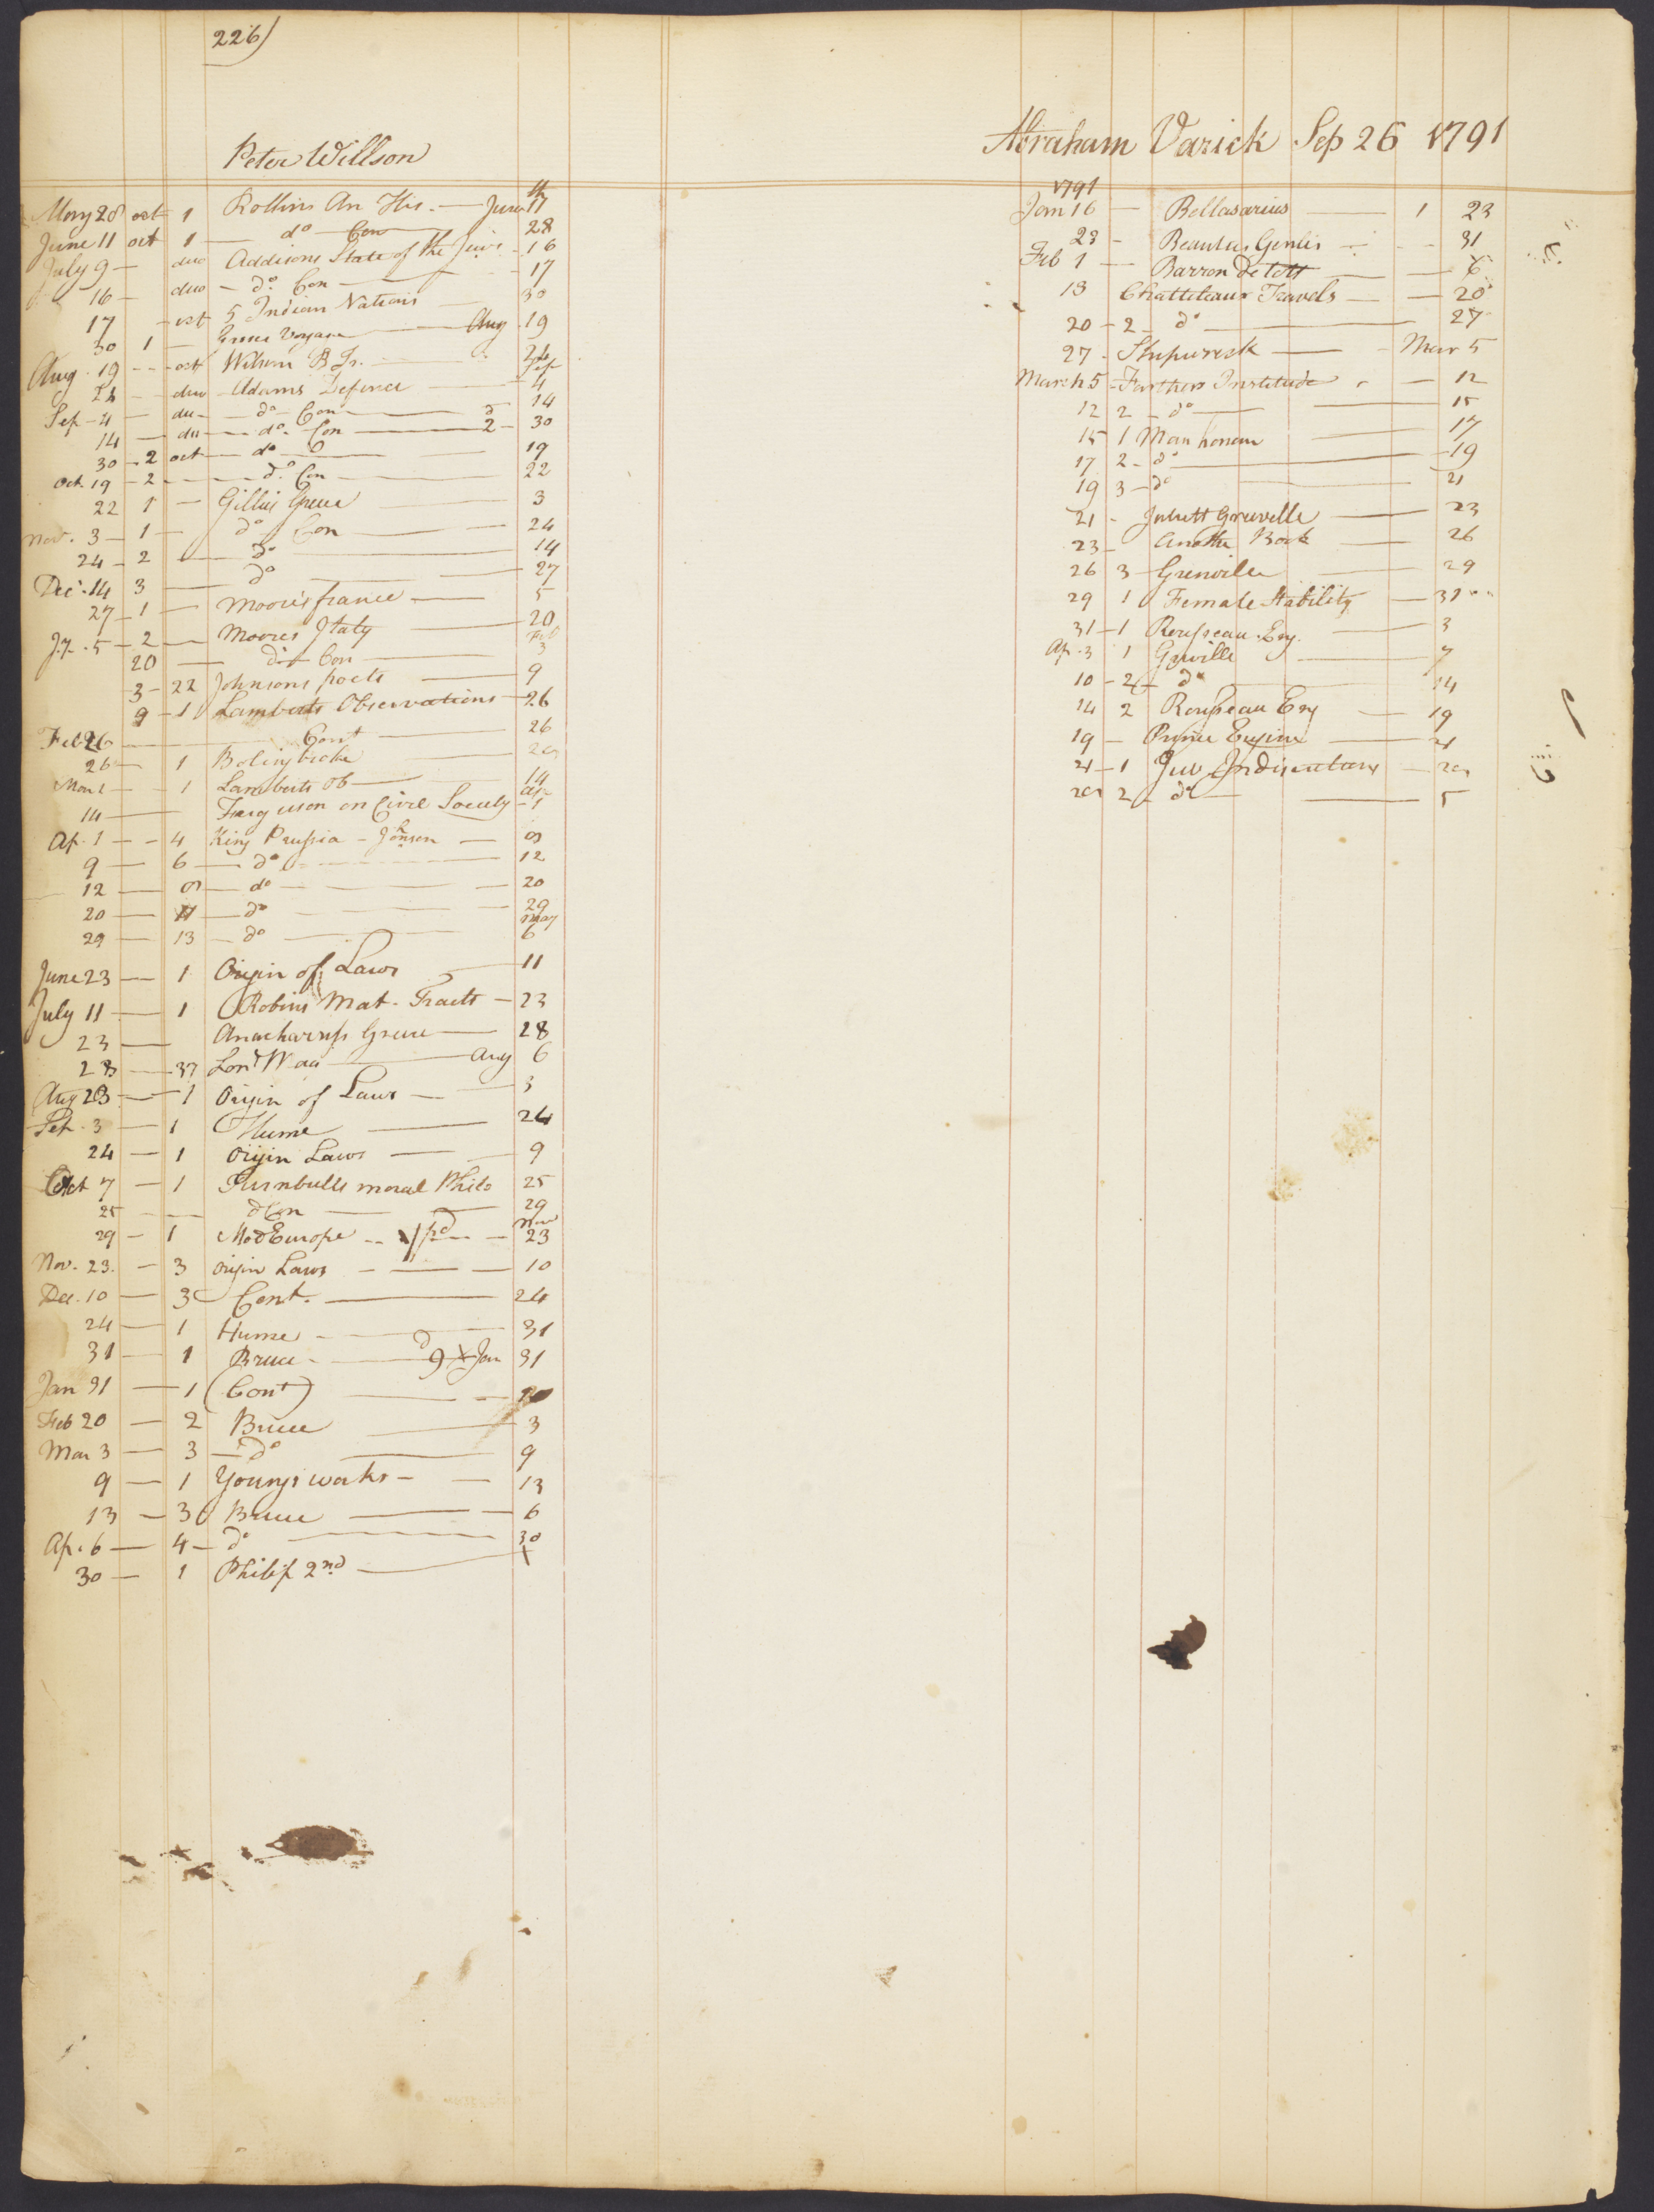 226)
Peter Willson
May 28 oct 1 Rollins An His. — June 17th
June 11 oct 1 — do Con — 28
July 9 — duo Addisons State of the Jews - 16
16 — duo — do. Con — 17
17 — oct 5 Indian Nations — 30
30 1 — Voyage — Aug 19
Aug. 19 — oct Wilson — 24
24 — duo Adams Defence — Sep 4
Sep - 4 — du — do — Con — 14
14 — du — do. Con — 2 — 30
30 - 2 oct — do — 19
Oct. 19 - 2 — do Con — 22
22 1 — Gillies Greece — 3
Nov. 3 — 1 — do Con — 24
24 - 2 — do — 14
Dec. 14 3 — do — 27
27 - 1 — Moores france — 5
5 - 2 — Moores Italy — 20
20 — do Con — Feb 3
3 - 22 Johnsons poets — 9
9 - 1 Lamberts Observations — 26
Feb 26 — Cont — 26
26 — 1 Bolingbroke —
1 Lamberts ob — 14
14 — Ferguson on Civil Society - 1
Ap. 1 — 4 King Prussia — Johnson — 9
9 — 6 — do — 12
12 — 9 — do — 20
20 — 11 — do — 29
29 — 13 — do — May 6
June 23 — 1 Origin of Laws — 11
July 11 — 1 Robins Mat. Tracts — 23
23 — Anacharsis Greece — 28
28 — 37 Lond Mag — Aug 6
Aug 23 — 1 Origin of Laws — 3
Sep. 3 — 1 Hume — 24
24 — 1 Origin Laws — 9
Oct 7 — 1 Turnbulls moral Philo 25
25 — do Con — 29
29 — 1 Mod Europe — Nov 23
Nov. 23. — 3 Origin Laws — 10
Dec. 10 — 3 Cont. — 24
24 — 1 Hume — 31
31 — 1 Bruce — 9d X Jan 31
Jan 31 — 1 (Cont) — 20
Feb 20 — 2 Bruce — 3
Mar 3 — 3 — do — 9
9 — 1 Youngs works — 13
13 — 3 Bruce — 6
Ap. 6 — 4 — do — 30
30 — 1 Philip 2nd — X
Abraham Varick Sep 26 1791
1791
Jan 16 — Bellasarius — 1 23
23 — Beauties Genlis — 31
Feb 1 — Barron De Tott — 6
13 Chattelaux Travels — 20
20 - 2 - do — 27
27 - Shipwreck — Mar 5
March 5 - — 12
12 2 - do — 15
15 1 Man honour — 17
17 2 - do — 19
19 3 - do — 21
21 - Juliett Grenville — 23
23 - Another Book — 26
26 3 — Grenville — 29
29 1 Female Stability — 31
31 - 1 Rousseau Esq. — 3
Ap. 3 1 Grville — 7
10 - 2 - do — 14
14 2 Rousseau Esq — 19
19 — Prince Eugine — 21
21 - 1 —
2 - do — 5